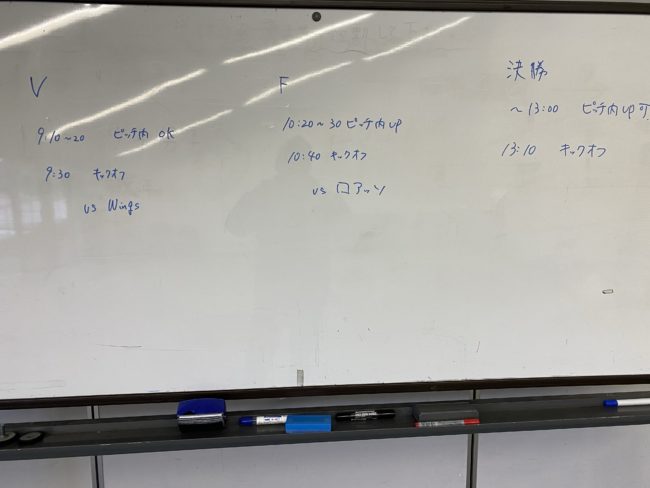 V
9:10~20 ピッチ内 OK
9:30 キックオフ
vs Wings
F
10:20~30 ピッチ内 up
10:40 キックオフ
vs ロアッソ
決勝
~13:00 ピッチ内 up 可
13:10 キックオフ